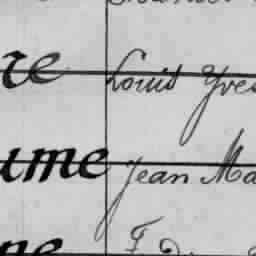 re Louis Yves
ume Jean Ma
ne